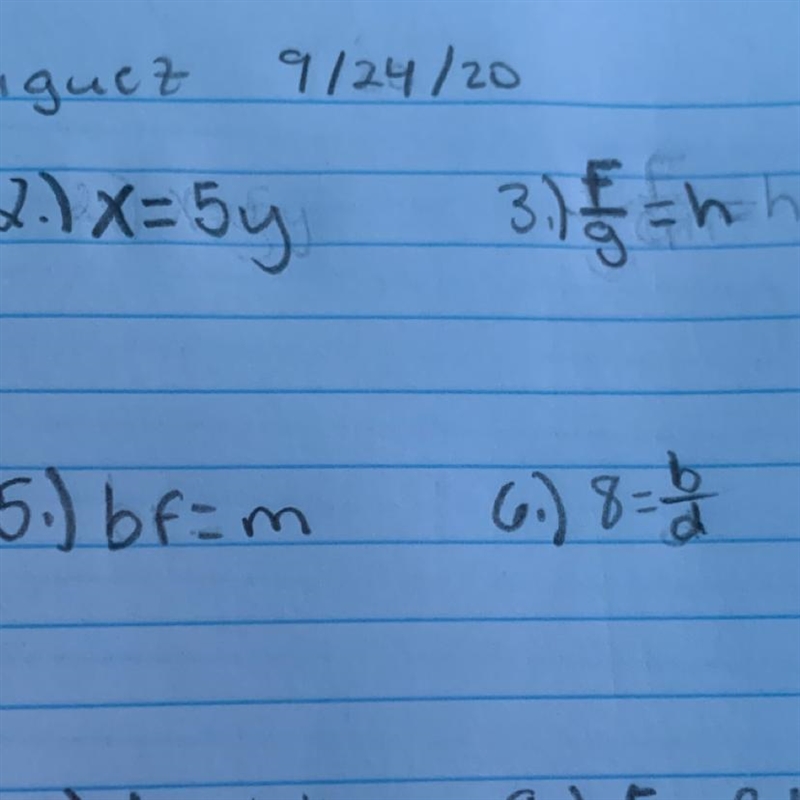 iguez 9/24/20
2.) x=5y 3.) F/g = h
5.) bf = m 6.) 8 = b/d